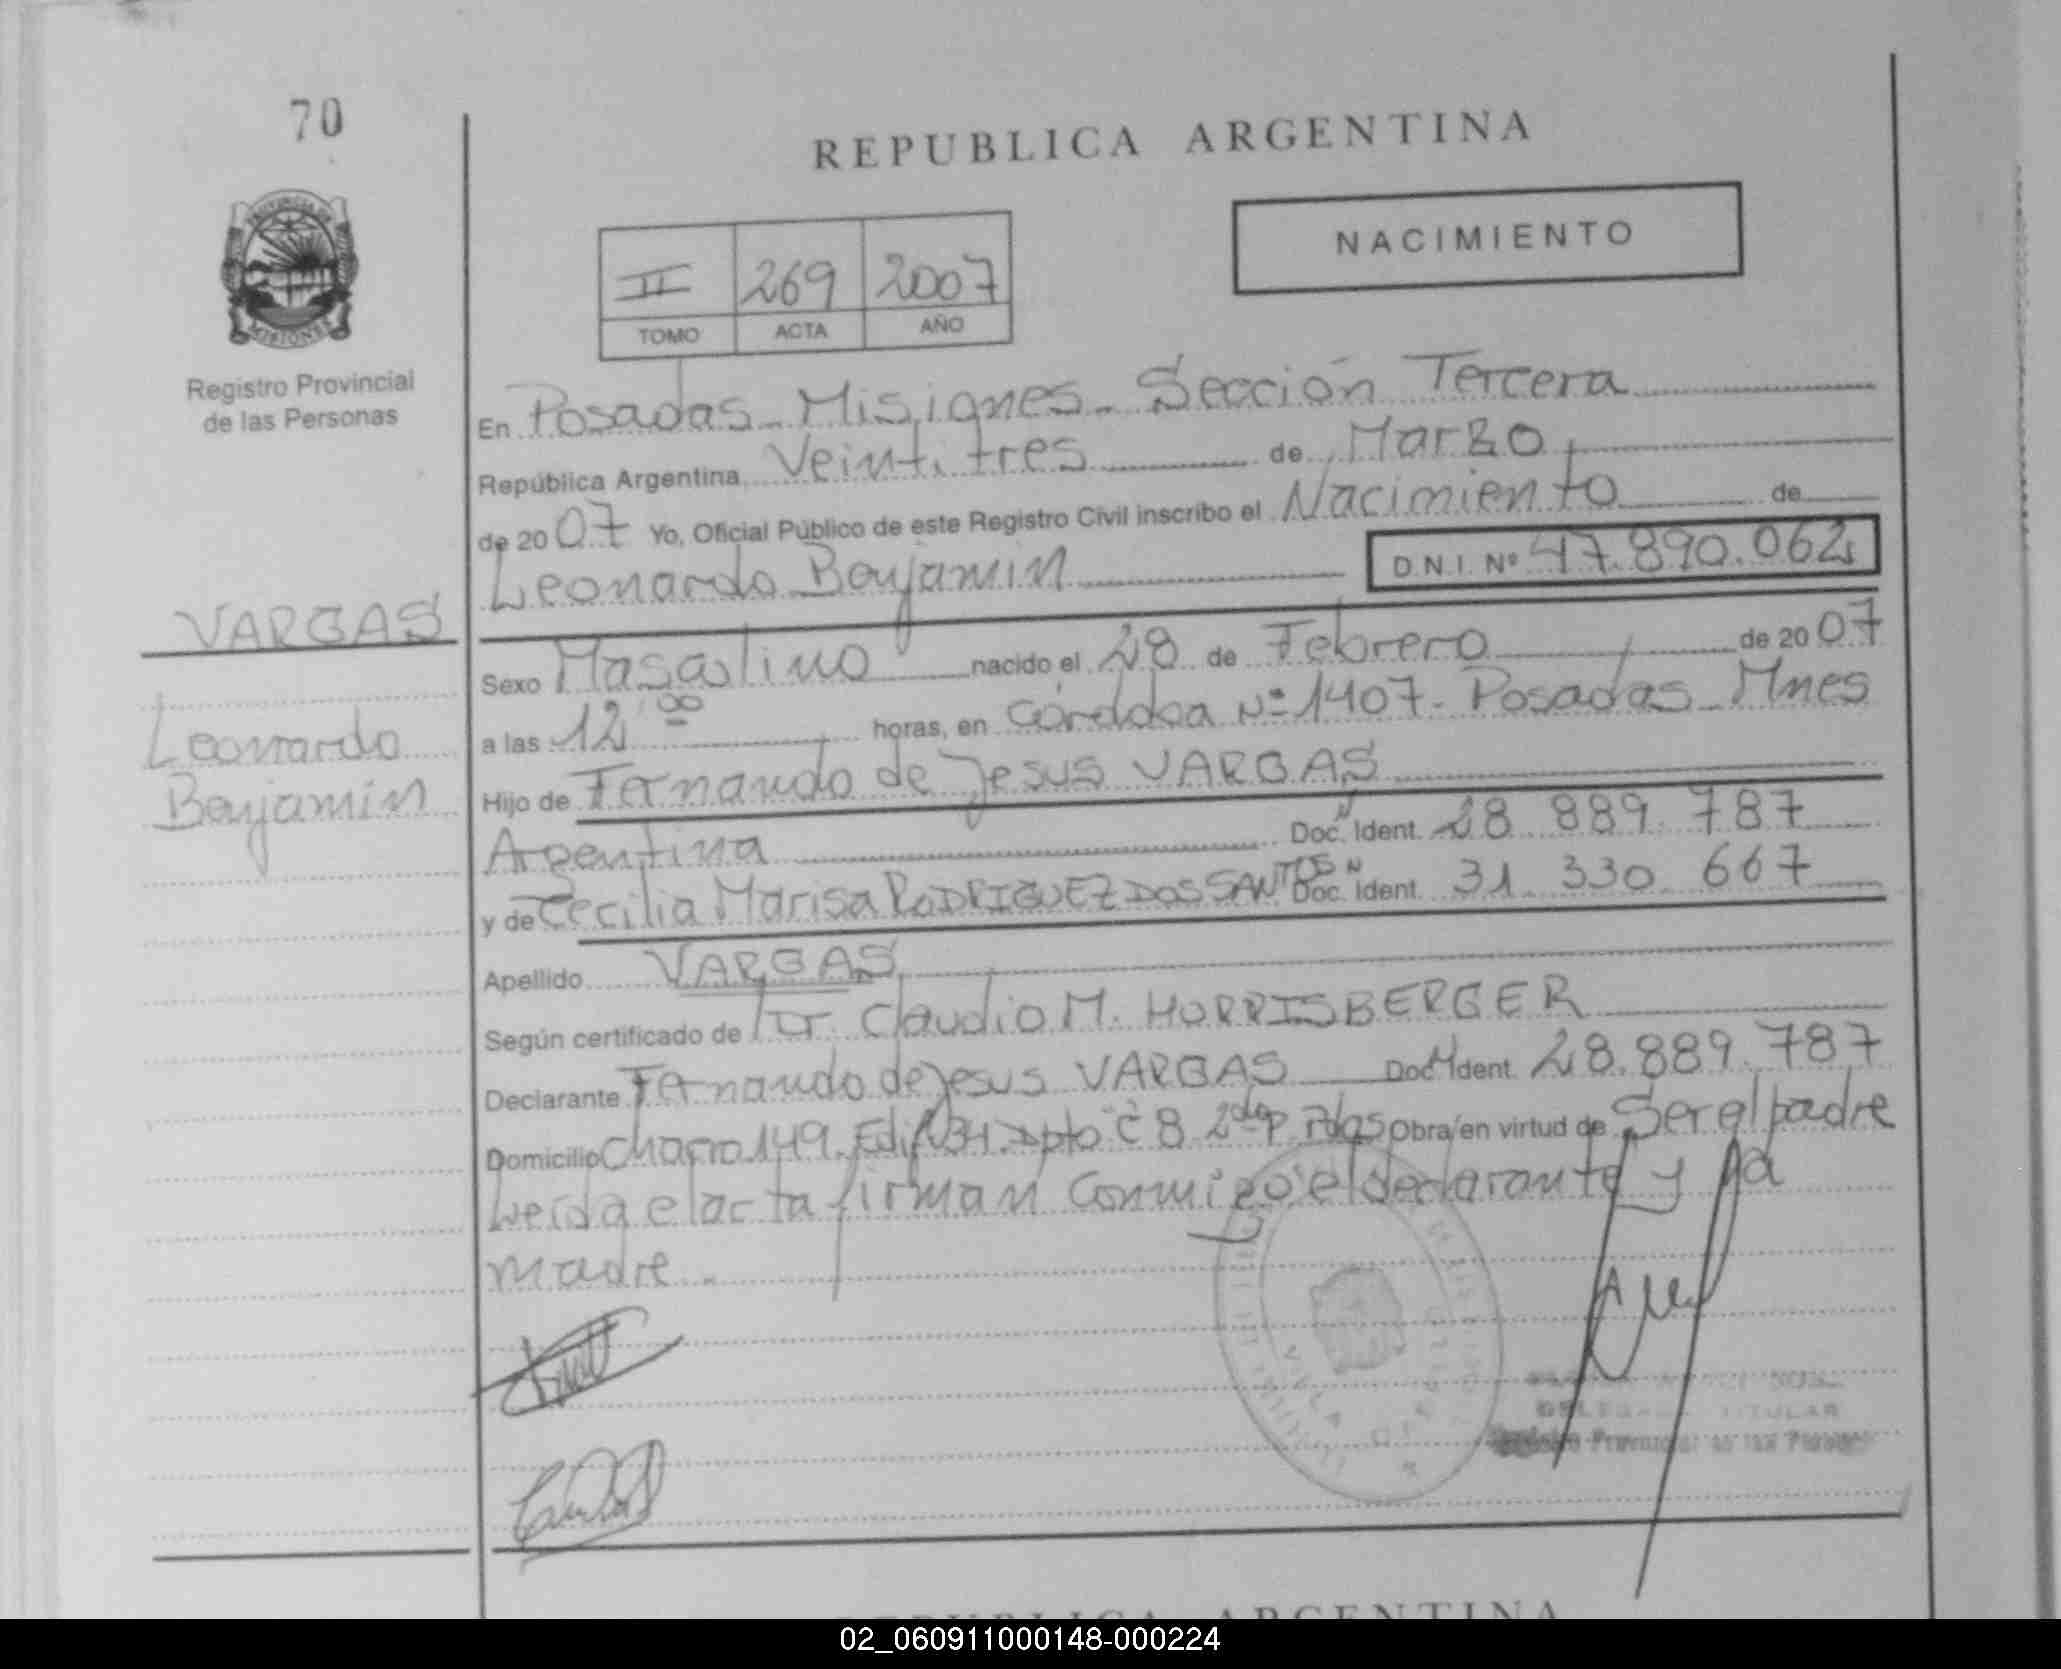 70
REPUBLICA ARGENTINA
PROVINCIA DE
MISIONES
Registro Provincial
de las Personas
II 269 2007
TOMO ACTA AÑO
NACIMIENTO
En Posadas - Misiones - Sección Tercera
República Argentina Veintitres de Marzo
de 2007 Yo, Oficial Público de este Registro Civil inscribo el Nacimiento de
Leonardo Benjamin D.N.I. Nº 47.890.062
VARGAS
Leonardo
Benjamin
Sexo Masculino nacido el 28 de Febrero de 2007
a las 12 00 horas, en Córdoba Nº 1407 - Posadas - Mnes
Hijo de Fernando de Jesus VARGAS
Argentina Doc. Ident. 28 889 787
y de Cecilia Marisa RODRIGUEZ DOS SANTOS Doc. Ident. 31 330 667
Apellido VARGAS
Según certificado de Dr. Claudio M. HORRISBERGER
Declarante Fernando de Jesus VARGAS Doc. Ident. 28.889.787
Domicilio Chacra 149. Edif. Dpto C 8 2do P. Pdas Obra en virtud de Ser el padre
Leída el acta firman conmigo el declarante y la
madre
TITULAR
Registro Provincial de las Personas
REPUBLICA ARGENTINA
02_060911000148-000224